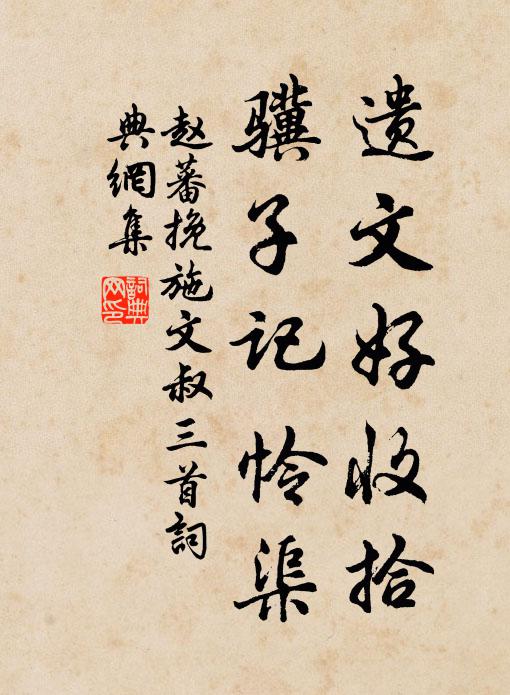 遗文好收拾
骥子记怜渠
赵蕃挽施文叔三首詞
典網集
詞典网印